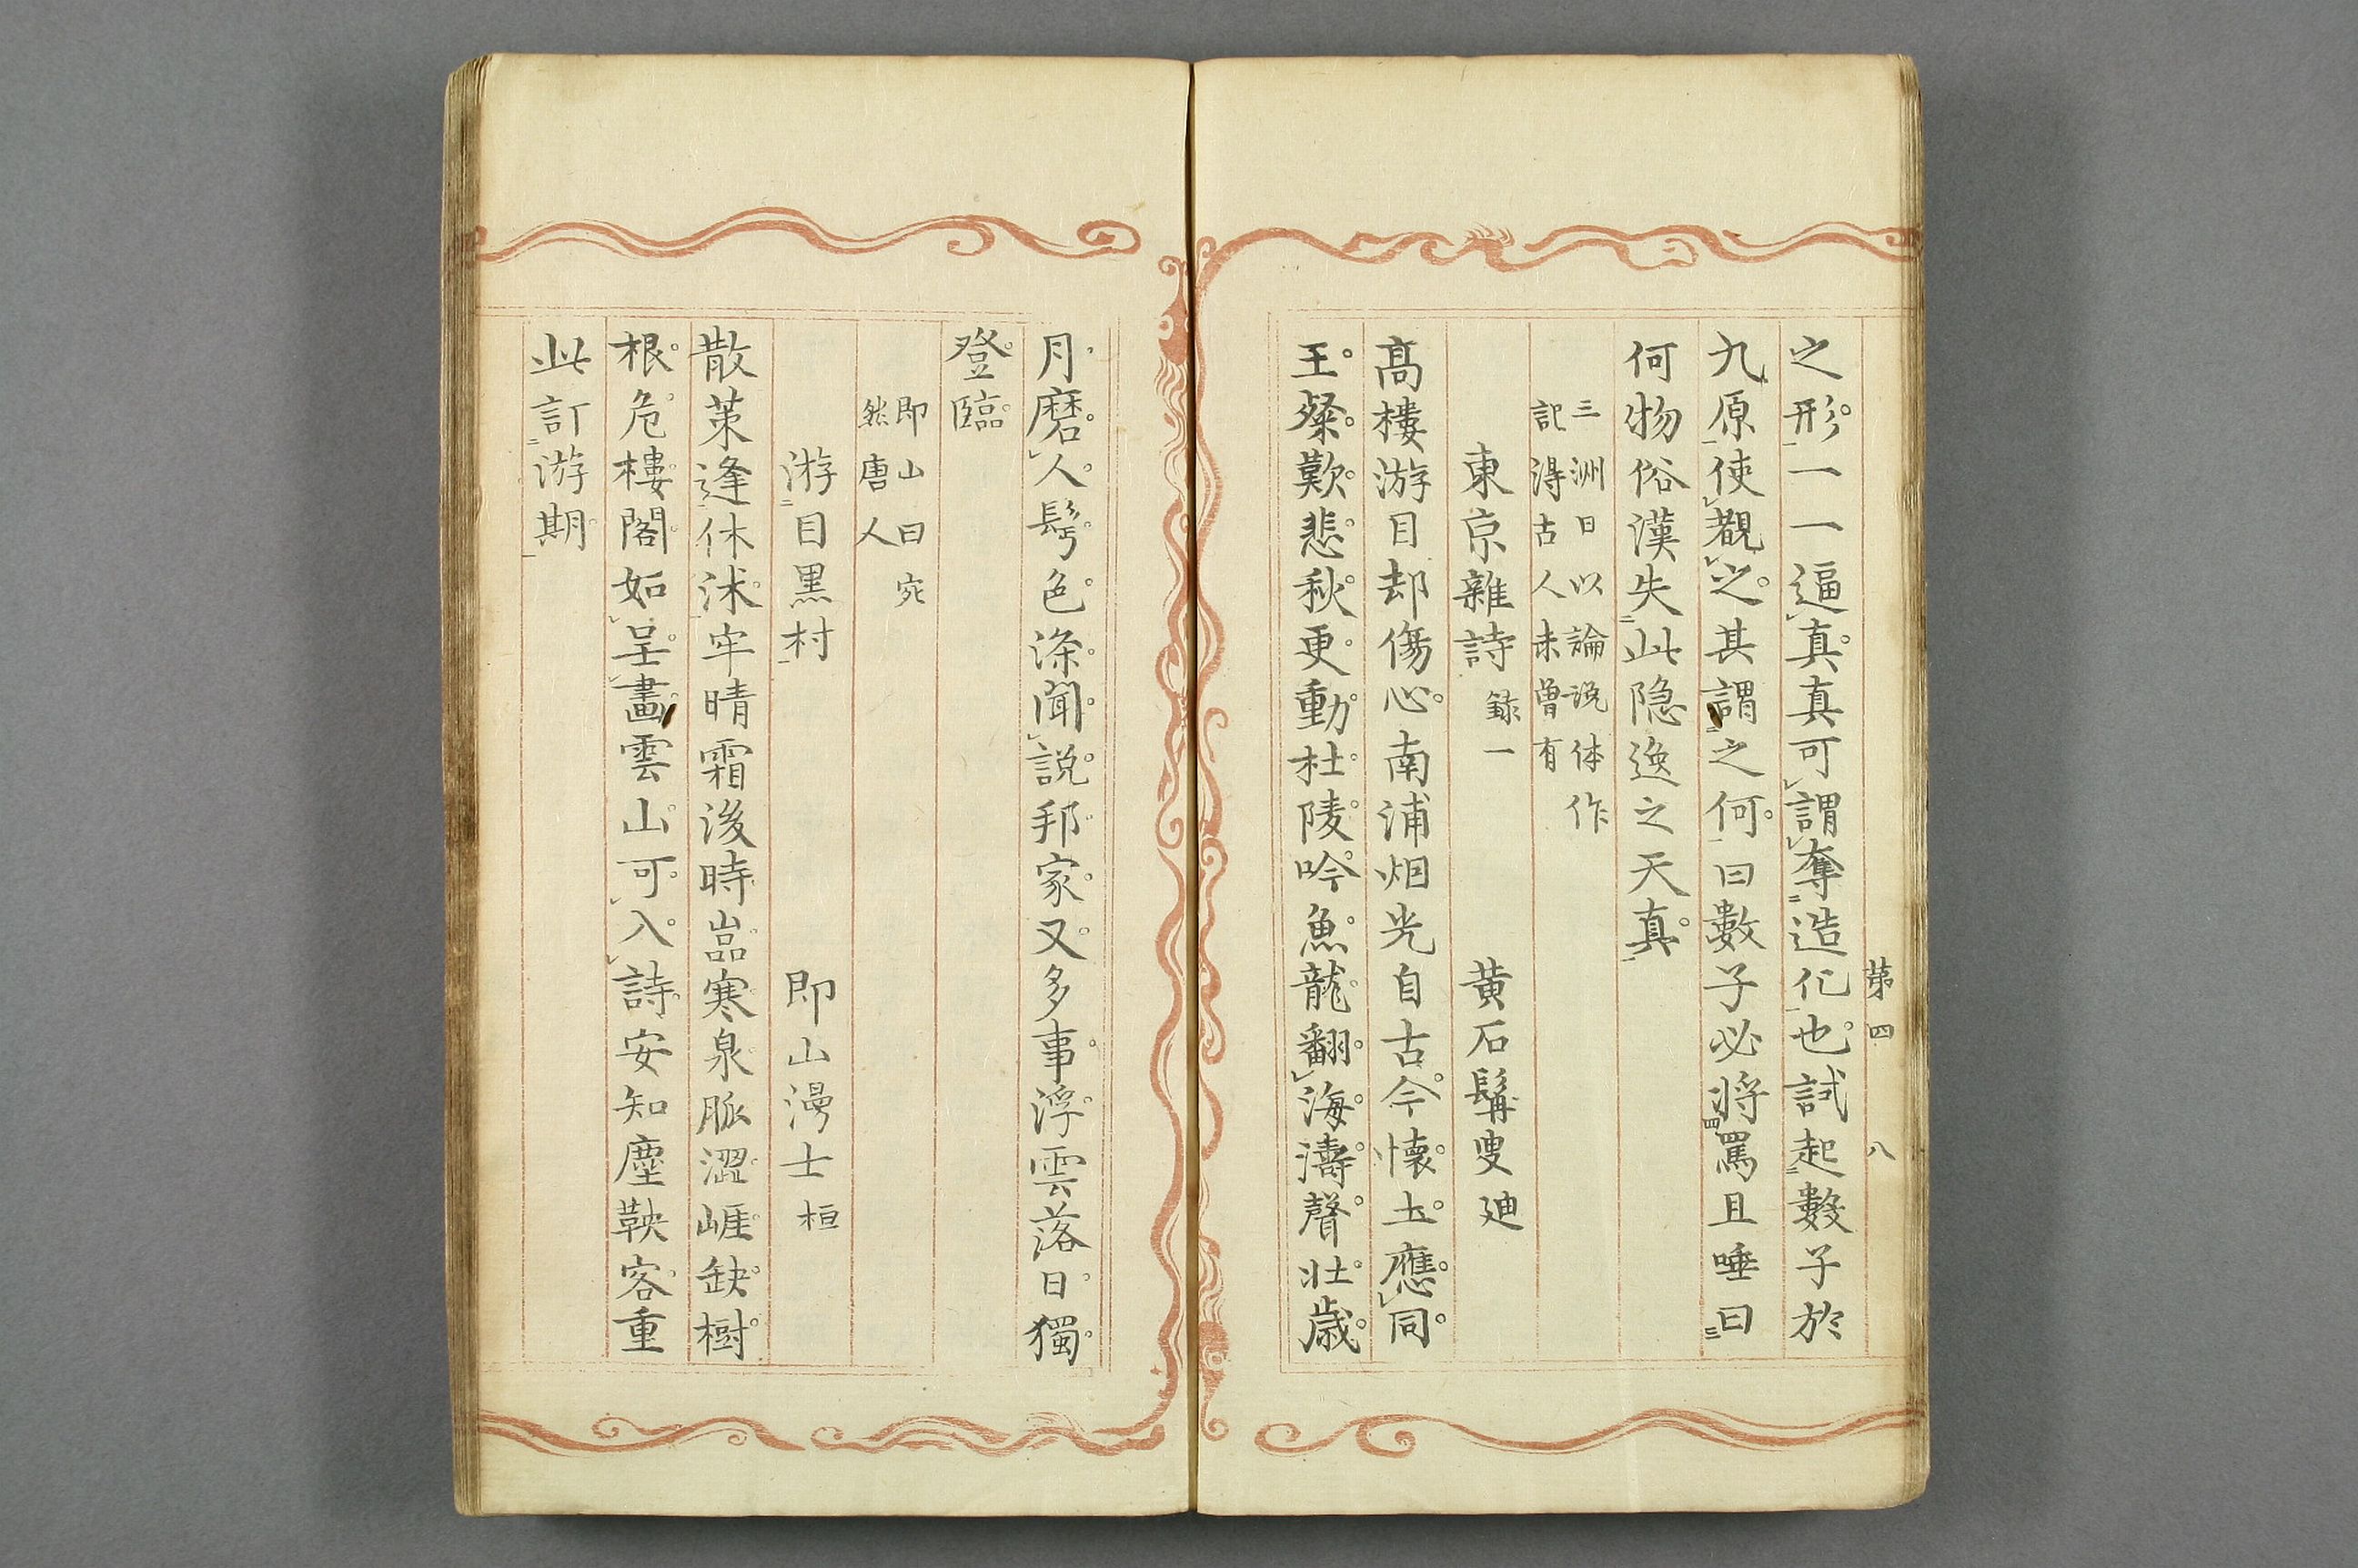 第四 八
之形一一逼真真可謂奪造化也試起數子於
九原使觀之其謂之何曰數子必將罵且唾曰
何物俗漢失此隠逸之天真
三洲曰以論説体作
記得古人未曽有
東京雜詩 録一 黄石鬅叟廸
髙樓游目却傷心南浦烟光自古今懐土應同
王粲歎悲秋更動杜陵吟魚龍翻海濤聲壮歳
月磨人髩色滌聞説邦家又多事浮雲落日獨
登臨
即山曰宛
然唐人
游目黒村 即山漫士桓
散策逢休沐牢晴霜後時嵓寒泉脈澀崕缺樹
根危樓閣如呈畫雲山可入詩安知塵鞅客重
此訂游期